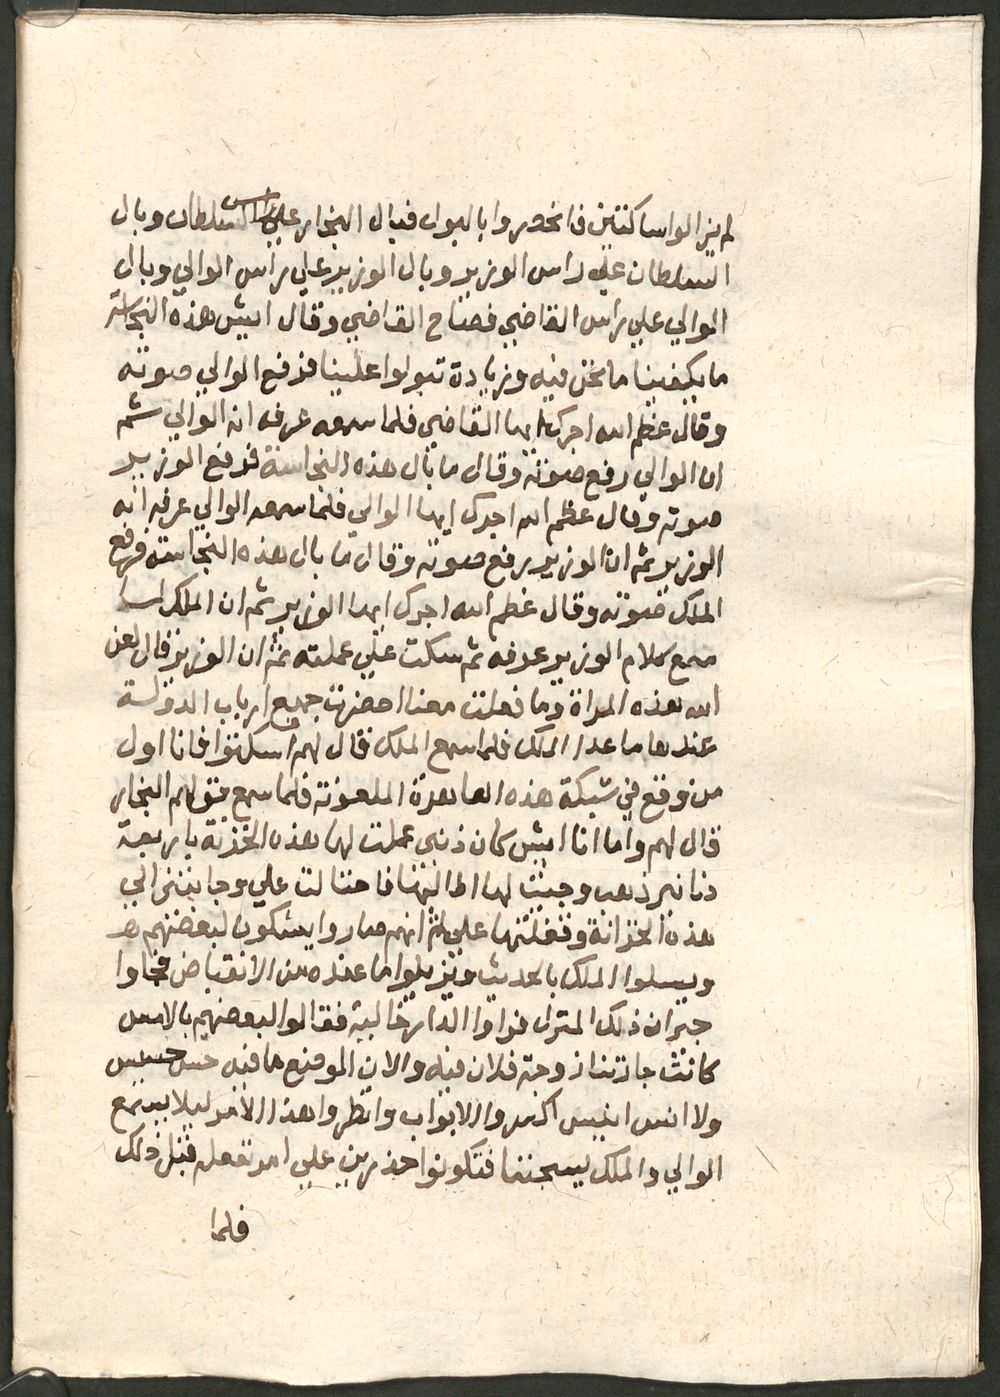 لم يزالوا ساكتين فانحصروا بالبول فبال النجار علي راس السلطان وبال
السلطان علي راس الوزير وبال الوزير علي راس الوالي وبال
الوالي علي راس القاضي فصاح القاضي وقال ايش هذه النجاسة
ما يكفينا ما نحن فيه وزيادة تبولوا علينا فرفع الوالي صوته
وقال عظم الله اجرك ايها القاضي فلما سمعه عرفه انه الوالي ثم
ان الوالي رفع صوته وقال ما بال هذه النجاسة فرفع الوزير
صوته وقال عظم الله اجرك ايها الوالي فلما سمعه الوالي عرفه انه
الوزير ثم ان الوزير رفع صوته وقال ما بال هذه النجاسة فرفع
الملك صوته وقال عظم الله اجرك ايها الوزير ثم ان الملك لما
سمع كلام الوزير عرفه ثم سكت علي عملته ثم ان الوزير قال لعن
الله هذه المراة وما فعلت معنا احضرت جميع ارباب الدولة
عندها ما عدا الملك فلما سمع الملك قال لهم اسكتوا فانا اول
من وقع في شبكة هذه العاهرة الملعونة فلما سمع قولهم النجار
قال لهم واما انا ايش كان ذنبي عملت لها هذه الخزنة باربعة
دنانير ذهب وجيت لها اطالبها فاحتالت علي وجابتني الي
هذه الخزانة وقفلتها علي ثم انهم صاروا يشكون لبعضهم
ويسلوا الملك بالحديث ويزيلوا ما عنده من الانقباض فجاوا
جيران ذلك المنزل فراوا الدار خالية فقالوا لبعضهم بالامس
كانت جارتنا زوجة فلان فيه والان الموضع ما فيه حس حسيس
ولا انس انيس اكسروا الابواب وانظروا هذا الامر ليلا يسمع
الوالي والملك يسجننا فتكونوا حذرين علي امر نفعله قبل ذلك
فلما